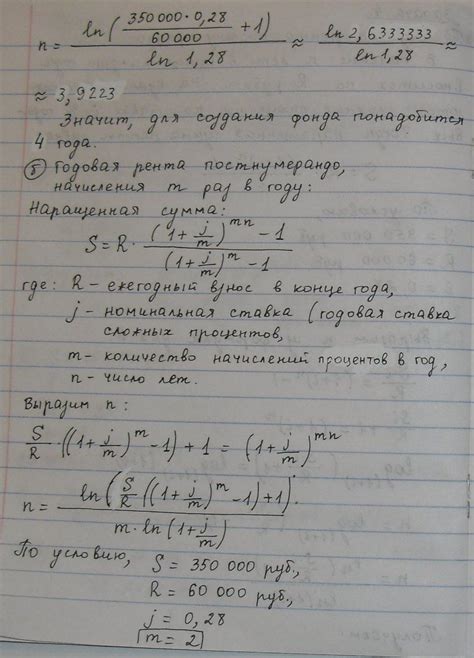 n = ln(350 000 · 0,28 / 60 000 + 1) / ln 1,28 ≈ ln 2,6333333 / ln 1,28 ≈
≈ 3,9223
Значит, для создания фонда понадобится
4 года.
б) Годовая рента постнумерандо,
начисления m раз в году:
Наращенная сумма:
S = R · ((1 + j/m)^mn − 1) / ((1 + j/m)^m − 1)
где: R – ежегодный взнос в конце года,
j – номинальная ставка (годовая ставка
сложных процентов,
m – количество начислений процентов в год,
n – число лет.
Выразим n:
S/R · ((1 + j/m)^m − 1) + 1 = (1 + j/m)^mn
n = ln(S/R ((1 + j/m)^m − 1) + 1) / m · ln(1 + j/m)
По условию, S = 350 000 руб.,
R = 60 000 руб.,
j = 0,28
m = 2